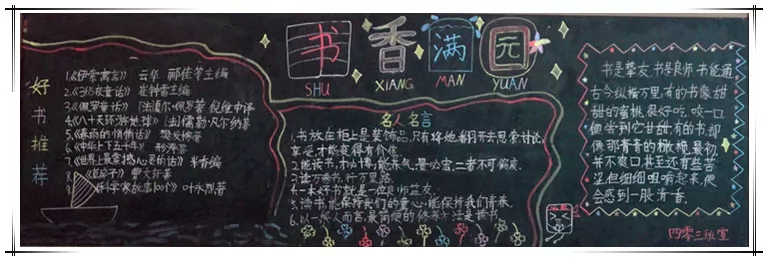 书香满园
SHU XIANG MAN YUAN
好书推荐
1.《伊索寓言》 云华 郦佳苹主编
2.《365夜童话》 崔钟雷主编
3.《佩罗童话》 [法]道尔·佩罗著 倪维中译
4.《八十天环游地球》 [法]儒勒·凡尔纳著
5.《春雨的悄悄话》 樊发稼著
6.《中华上下五千年》
7.《世界上最震撼心灵的话》 主编
8.《草房子》 曹文轩著
9.《科学家故事100个》 叶永烈著
名人名言
1.书放在柜上是装饰品,只有将她翻开去思索讨论,
享受才能变得有价值
2.能读书,怡心情,能养气,
二者不可偏废.
3.读万卷书,行万里路.
4.一本好书就是一位良师益友.
5.读书,能保持我们的童心,能保持我们青春.
6.以一般人而言,最简便的修养方法是读书.
书是挚友,书是良师,书能通
古今纵横万里,有的书像甜
甜的蜜桃,很好吃,咬一口
便尝到它甘甜,有的书却
像那青青的橄榄,最初
并不爽口,甚至还有些苦
涩但细细咀嚼起来,便
会感到一股清香.
四零三班宣